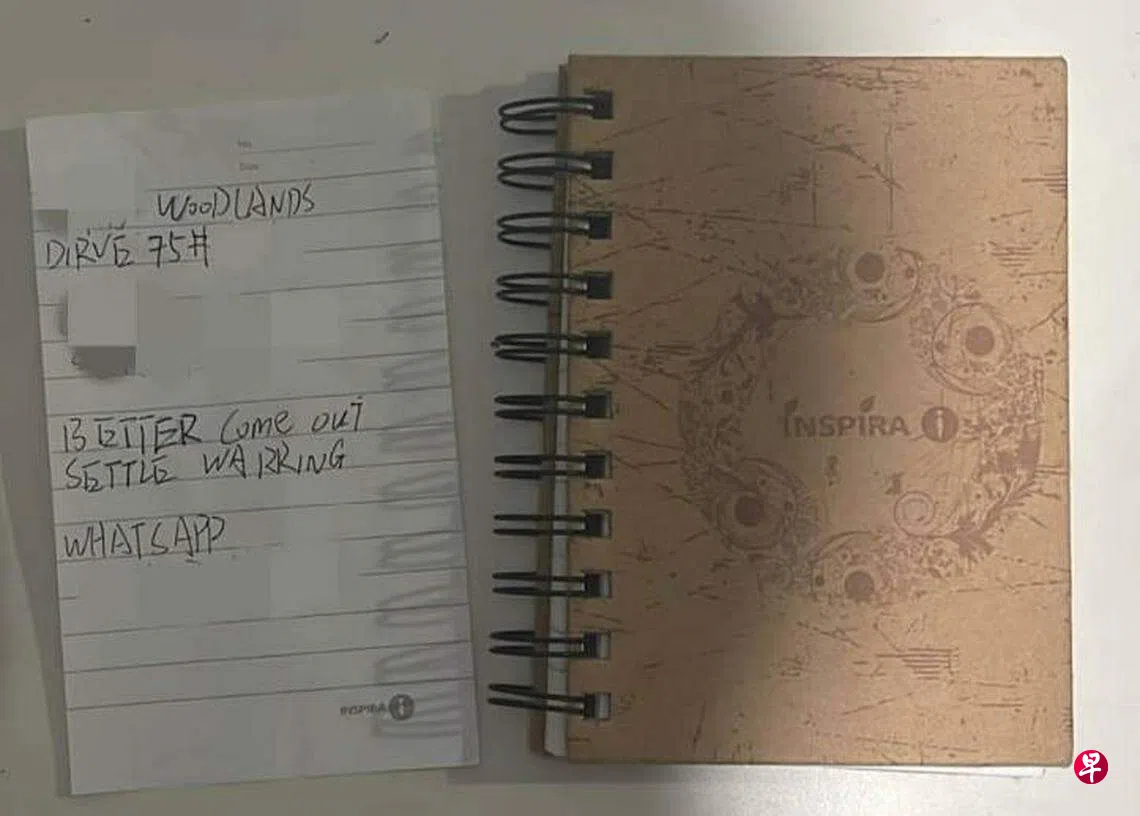 No.
Date
WOODLANDS
DIRVE 75#
BETTER COME OUT
SETTLE WARRING
WHATSAPP
INSPIRA i
INSPIRA i
早